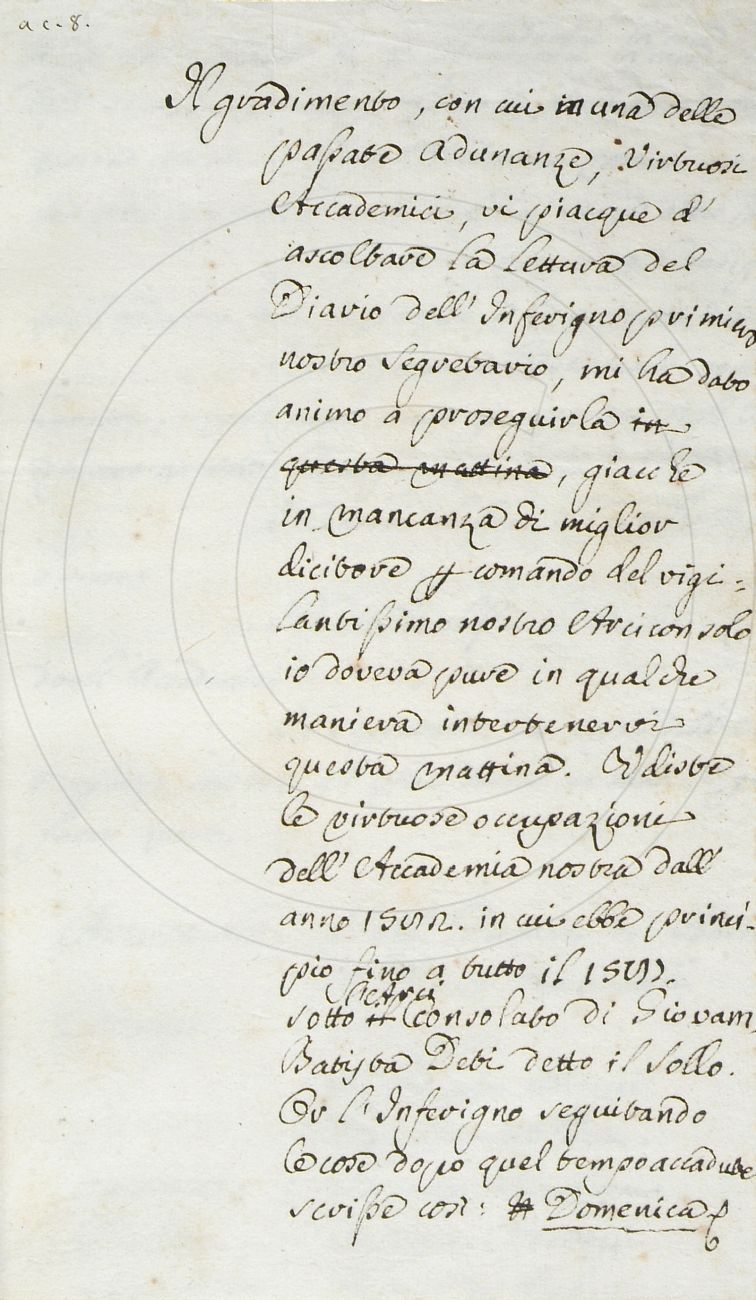 a c. 8.
Il gradimento, con cui in una delle
passate Adunanze, Virtuosi
Accademici, vi piacque d'
ascoltare la lettura del
Diario dell'Inferigno primiero
nostro Segretario, mi ha dato
animo a proseguirla in
questa mattina, giacchè
in mancanza di miglior
dicitore p comando del vigi=
lantissimo nostro Arciconsolo
io doveva pure in qualche
maniera intertenervi
questa mattina. Udiste
le virtuose occupazioni
dell'Accademia nostra dall'
anno 1582. in cui ebbe princi-
pio fino a tutto il 1585.
l'Arci
sotto il Consolato di Giovam
Batista Deti detto il Sollo.
Or l'Inferigno seguitando
le cose dopo quel tempo accadute
scrisse così: Domenica